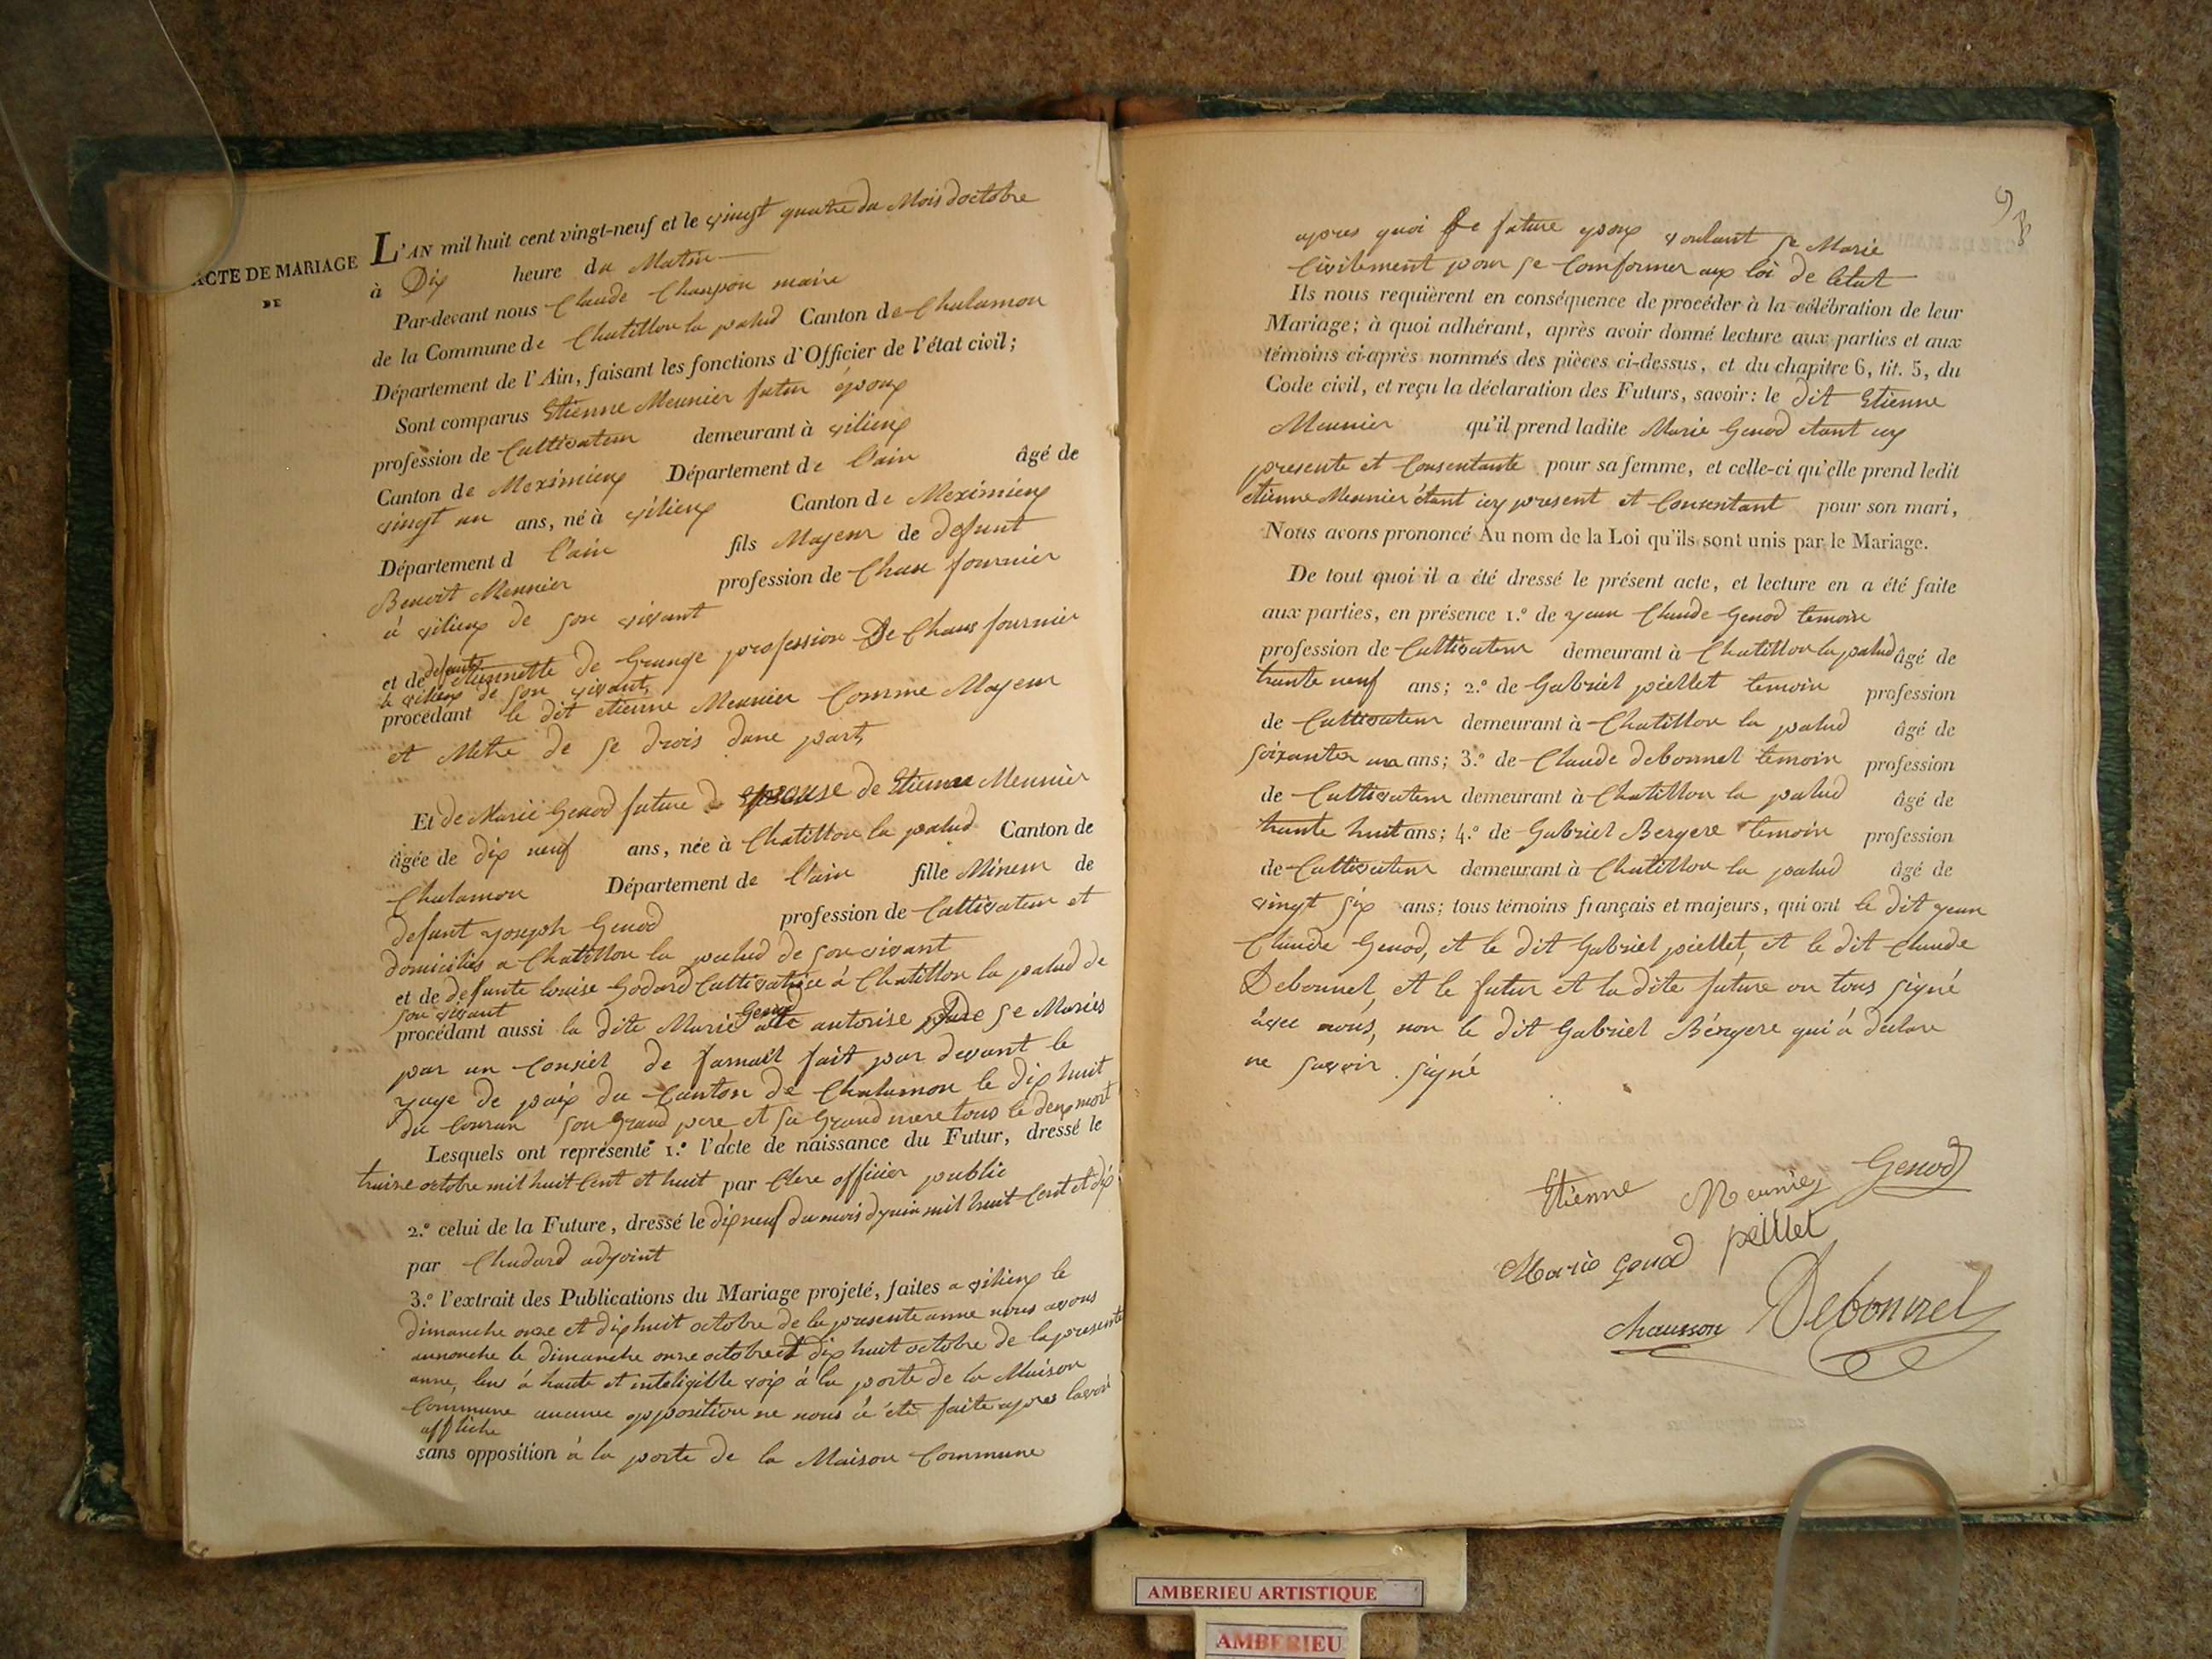 ACTE DE MARIAGE
DE
L'AN mil huit cent vingt-neuf et le vingt quatre du Mois doctobre
à Dix heure du Matin
Par-devant nous Claude Chaupon maire
de la Commune de Chatillon la palud Canton de Chalamon
Département de l'Ain, faisant les fonctions d'Officier de l'état civil;
Sont comparus Etienne Meunier futur époux
profession de Cultivateur demeurant à vilieux
Canton de Meximieux Département de l'ain âgé de
vingt un ans, né à vilieux Canton de Meximieux
Département d l'ain fils Majeur de defunt
Benoit Meunier profession de Chau fournier
à vilieux de son vivant
et de defunte etiennette de Grange profession De Chaus fournier
à vilieux de son vivant,
procédant le dit etienne Meunier Comme Majeur
et Metre de se drois dune part,
Et de Marie Genod future epouse de Etienne Meunier
âgée de dix neuf ans, née à Chatillon la palud Canton de
Chalamon Département de l'ain fille Mineur de
defunt Joseph Genod profession de Cultivateur et
domiciliés a Chatillon la palud de son vivant
et de defunte louise Godard Cultivatrice à Chatillon la palud de
son vivant
procédant aussi la dite Marie Genod autorise se Mariés
par un Consiel de famaill fait par devant le
juge de paix du Canton de Chalamon le dix huit
du Couran son Grand pere et sa Grand mere tous le deux mort
Lesquels ont représenté 1.º l'acte de naissance du Futur, dressé le
traize octobre mil huit Cent et huit par Clere officier public
2.º celui de la Future, dressé le dix neuf du mois djuin mil huit Cent et dix
par Chudard adjoint
3.º l'extrait des Publications du Mariage projeté, faites a vilieux le
dimanche onze et dix huit octobre de la presente anne nous avons
annonche le dimanche onze octobre et dix huit octobre de la presente
anne, leus à haute et inteligible voix à la porte de la Maison
Commune aucune opposition ne nous à été faite apres lavoir
affliche
sans opposition à la porte de la Maison Commune
apres quoi le future epoux voulant se Marié
Civilement pour se Comformer aux loi de letat
Ils nous requièrent en conséquence de procéder à la célébration de leur
Mariage; à quoi adhérant, après avoir donné lecture aux parties et aux
témoins ci-après nommés des pièces ci-dessus, et du chapitre 6, tit. 5, du
Code civil, et reçu la déclaration des Futurs, savoir: le dit Etienne
Meunier qu'il prend ladite Marie Genod etant icy
presente et Consentante pour sa femme, et celle-ci qu'elle prend ledit
etienne Meunier étant icy present et Consentant pour son mari,
Nous avons prononcé Au nom de la Loi qu'ils sont unis par le Mariage.
De tout quoi il a été dressé le présent acte, et lecture en a été faite
aux parties, en présence 1.º de jean Claude Genod temoin
profession de Cultivateur demeurant à Chatillon la palud âgé de
trante neuf ans; 2.º de Gabriel peillet temoin profession
de Cultivateur demeurant à Chatillon la palud âgé de
soixante un ans; 3.º de Claude debonnel temoin profession
de Cultivateur demeurant à Chatillon la palud âgé de
trante huit ans; 4.º de Gabriel Bergere temoin profession
de Cultivateur demeurant à Chatillon la palud âgé de
vingt six ans; tous témoins français et majeurs, qui ont le dit jean
Claude Genod, et le dit Gabriel piellet, et le dit Claude
Debonnel, et le futur et la dite future on tous signé
avec nous, non le dit Gabriel Bérgere qui à declare
ne savoir signé
Etienne Meunier Genod
Marie Genod peillet
Chausson Debonnel
AMBERIEU ARTISTIQUE
AMBERIEU